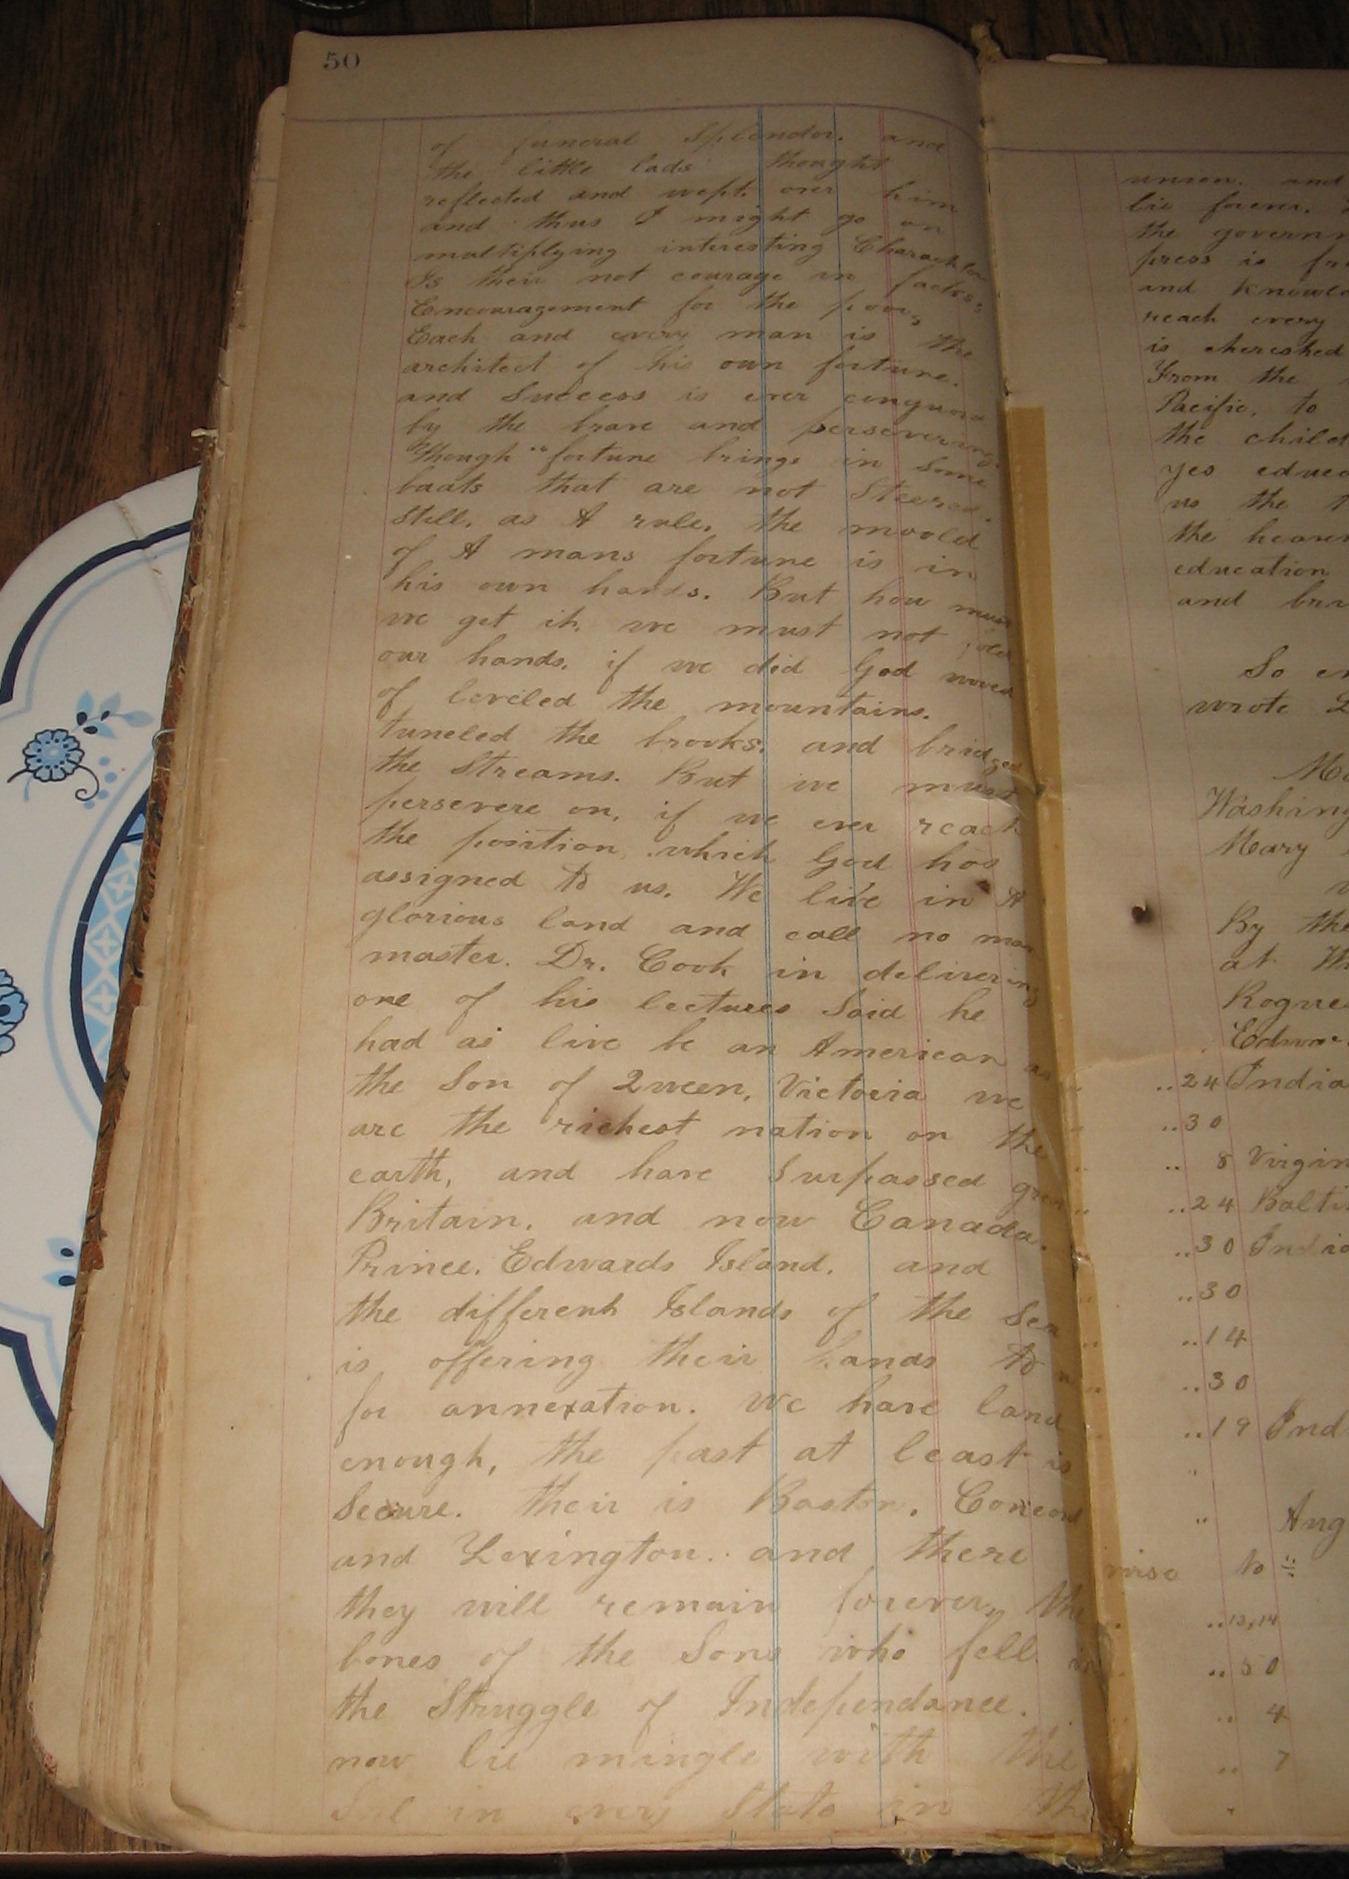 50
of funeral Splendor. and
the little lads thought
reflected and wept. over him
and thus I might go on
multiplying interesting Charachters
Is their not courage in facts.
Encouragement for the poor,
Each and every man is the
architect of his own fortune.
and Success is ever
by the brave and persevering.
Though "fortune brings in Some
boats that are not Steered.
Still, as A rule, the moold
of A mans fortune is in
his own hands. But how must
we get it. we must not
our hands. if we did God
of leveled the mountains.
tuneled the brooks. and bridged
the Streams. But we must
persevere on, if we ever reach
the position, which God has
assigned to us. We live in A
glorious land and call no man
master. Dr. Cook in delivering
one of his lectures Said he
had as live be an American as
the Son of Queen, Victoria we
are the richest nation on the
earth, and have Surpassed
Britain. and now Canada.
Prince. Edwards Island. and
the different Islands of the Sea
is offering their hands to
for annexation. We have land
enough, the past at least is
Secure. their is Boston, Concord
and Lexington. and there
they will remain forever, the
bones of the Sons who fell in
the Struggle of Independance.
now lie mingle with the
Soil in every State in the
union. and
lie forever.
the
press is
and
reach every
is chereshed
From the
Pacific, to
the
yes
us the
the
education
and
So
wrote

Mary
By the
at
..24 India
..30
.. 8
..24
..30
..30
..14
..30
..19 Ind
Aug
No
..13,14
.. 50
.. 4
.. 7